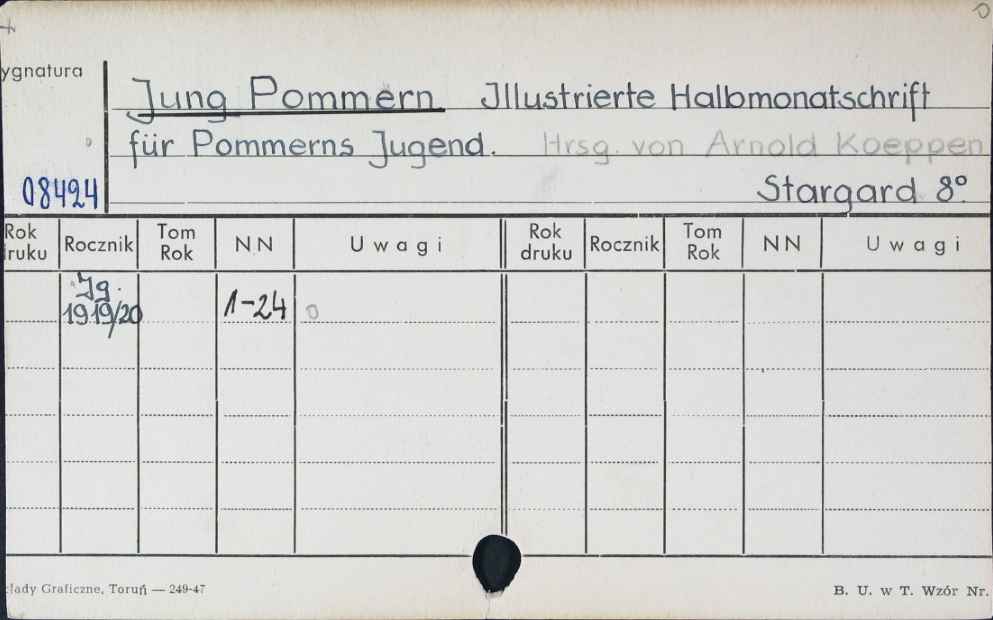 ygnatura
Jung Pommern Illustrierte Halbmonatschrift
für Pommerns Jugend. Hrsg. von Arnold Koeppen
08424 Stargard 8°.
Rok druku Rocznik Tom Rok NN Uwagi Rok druku Rocznik Tom Rok NN Uwagi
Jg.
1919/20 1-24 o
łady Graficzne, Toruń — 249-47 B. U. w T. Wzór Nr.